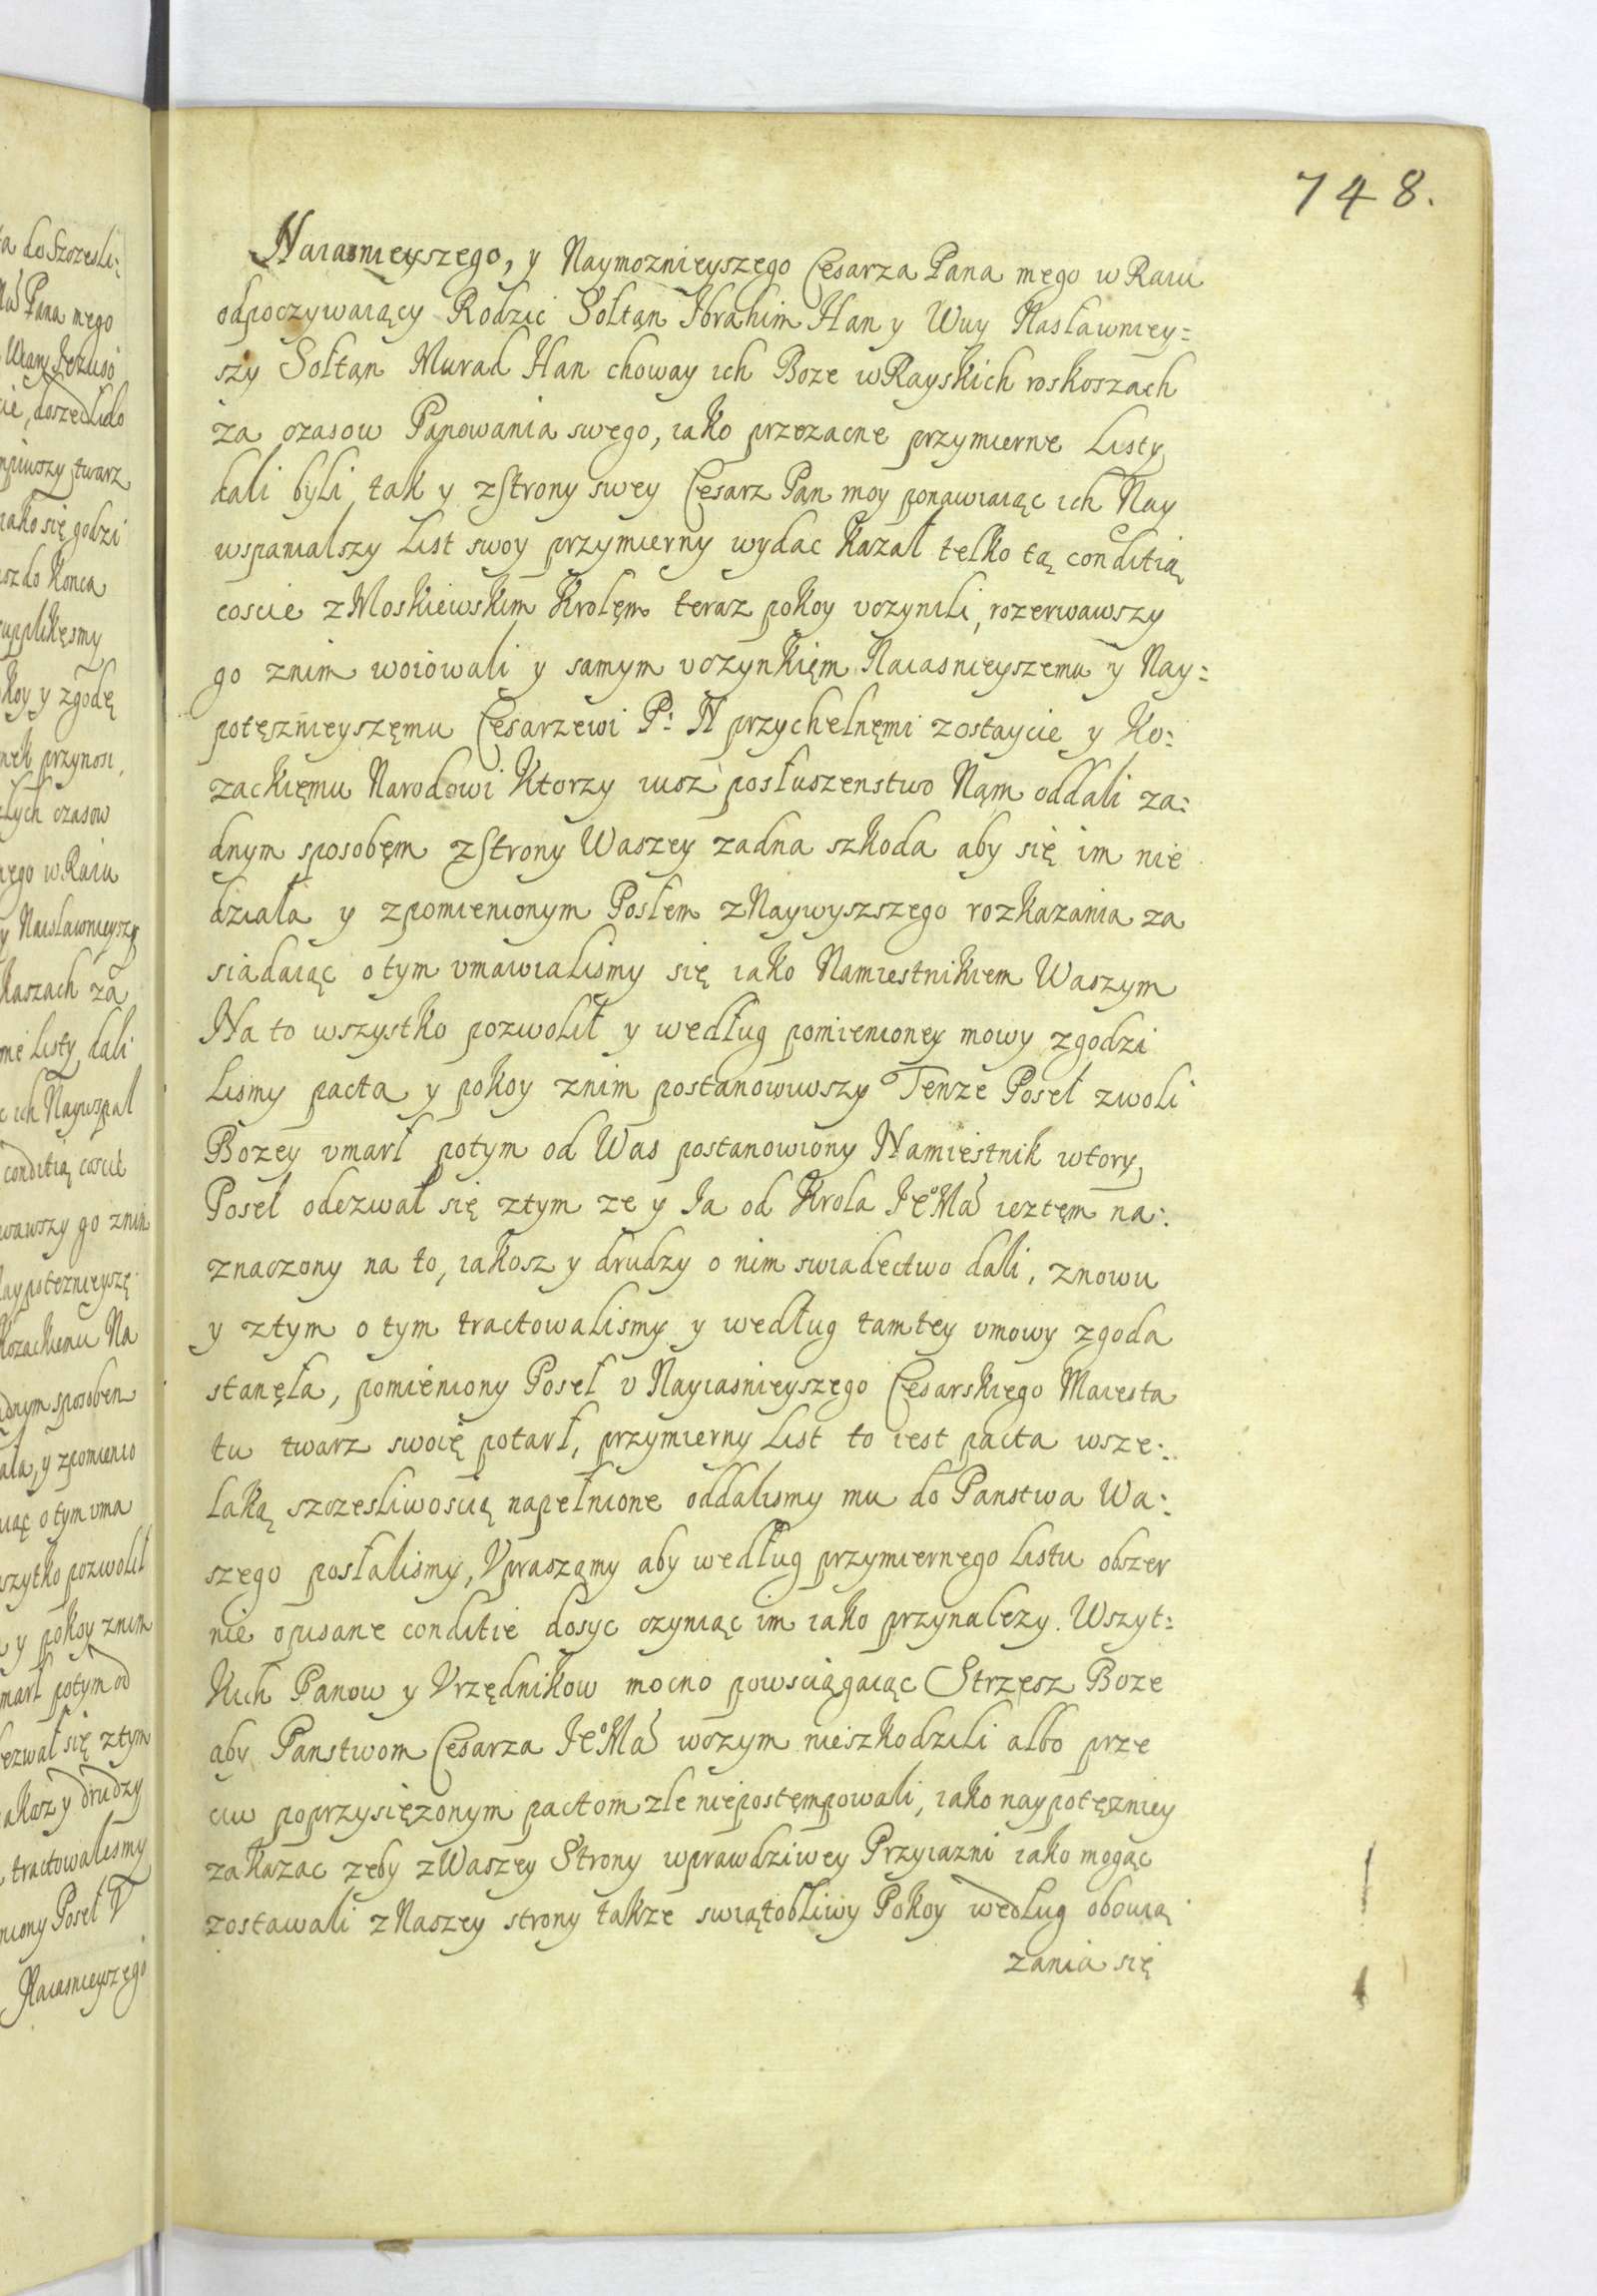 748.
Naiasnieyszego, y Naymoznieyszego Cesarza Pana mego w Raiu
odpoczywaiący Rodzic Sołtąn Ibrahim Han y Wuy Nasławniey=
szy Sołtąn Murad Han choway ich Boze w Rayskich roskoszach
za czasow Panowania swego, iako przezacne przymierne Listy
dali byli tak y z Strony swey Cesarz Pan moy ponawiaiąc ich Nay
wspanialszy List swoy przymierny wydac kazał telko tą conditią
coscie z Moskiewskim Krolęm teraz pokoy vczynili, rozerwawszy
go znim woiowali y samym vczynkięm Naiasnieyszemu y Nay=
potęznieyszęmu Cesarzewi P: N przychelnęmi zostaycie y Ko:
zackięmu Narodowi Ktorzy iusz posłuszenstwo Nąm oddali za:
dnym sposobęm z Strony Waszey zadna szkoda aby się im nie
działa y zpomienionym Posłem z Naywyszszego rozkazania za
siadaiąc o tym vmawialismy się iako Namiestnikiem Waszym
Na to wszystko pozwolił y według pomienioney mowy zgodzi
lismy pacta y pokoy znim postanowiwszy Tenze Poseł zwoli
Bozey vmarł potym od Was postanowiony Namiestnik wtory
Poseł odezwał się ztym ze y Ia od Krola IeºMći ieztęm na:
znaczony na to, iakosz y drudzy o nim swiadectwo dali, znowu
y ztym o tym tractowalismy y według tamtey vmowy zgoda
stanęła, pomieniony Poseł v Nayiasnieyszego Cesarskiego Maiesta
tu twarz swoię potarł, przymierny List to iest pacta wsze:
laką szczesliwoscią napełnione oddalismy mu do Panstwa Wa:
szego posłalismy, Vpraszamy aby według przymiernego Listu obszer
nie opisane conditie dosyc czyniąc im iako przynalezy. Wszyt=
kich Panow y Vrzędnikow mocno powsciągaiąc Strzesz Boze
aby Panstwom Cesarza IeºMći wczym nieszkodzili albo prze
ciw poprzysięzonym pactom zle niepostęmpowali, iako naypotęzniey
zakazac zeby z Waszey Strony wprawdziwey Przyiazni iako mogąc
zostawali z Naszey strony takze swiątobliwy Pokoy według obowią
zania się